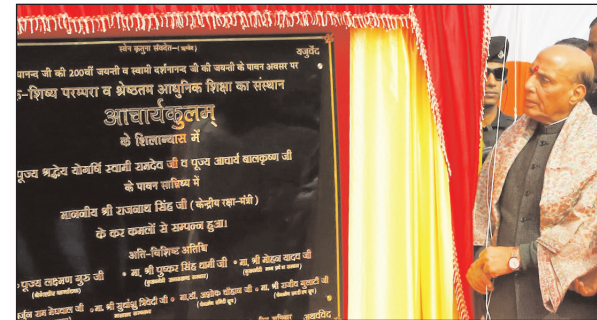 स्तेन कृतुना संवदेत-(ऋग्वेद) यजुर्वेद
पानन्द जी की 200वीं जयन्ती व स्वामी दर्शनानन्द जी की जयन्ती के पावन अवसर पर
-शिष्य परम्परा व श्रेष्ठतम आधुनिक शिक्षा का संस्थान
आचार्यकुलम्
के शिलान्यास में
पूज्य श्रद्धेय योगर्षि स्वामी रामदेव जी व पूज्य आचार्य बालकृष्ण जी
के पावन सान्निध्य में
माननीय श्री राजनाथ सिंह जी (केन्द्रीय रक्षा-मंत्री)
के कर कमलों से सम्पन्न हुआ।
अति-विशिष्ट अतिथि
पूज्य लक्ष्मण गुरु जी • मा. श्री पुष्कर सिंह धामी जी • मा. श्री मोहन यादव जी
राम मेघवाल जी • मा. श्री सुधांशु त्रिवेदी जी • मा.डॉ. अशोक चौहान जी • मा. श्री राजीव गुलाटी जी
अथर्ववेद